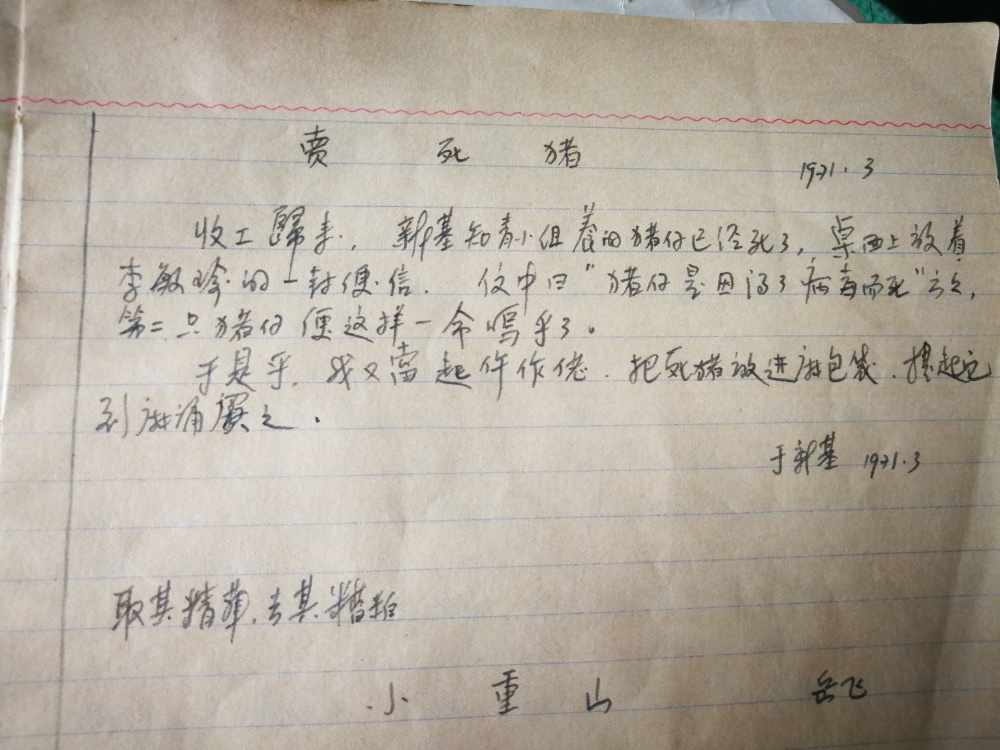 卖 死 猪 1971.3
收工歸来，新基知青小组养的猪仔已经死了，桌面上放着
李敏珍的一封便信． 仪中曰"猪仔是因得了病毒而死"云云，
第二只猪仔便这样一命嗚乎了。
于是乎，我又當起仵作佬．把死猪放进麻包袋．揹起它
到麻涌賣之．
于新基 1971.3
取其精華，去其糟粕
小 重 山 岳飞